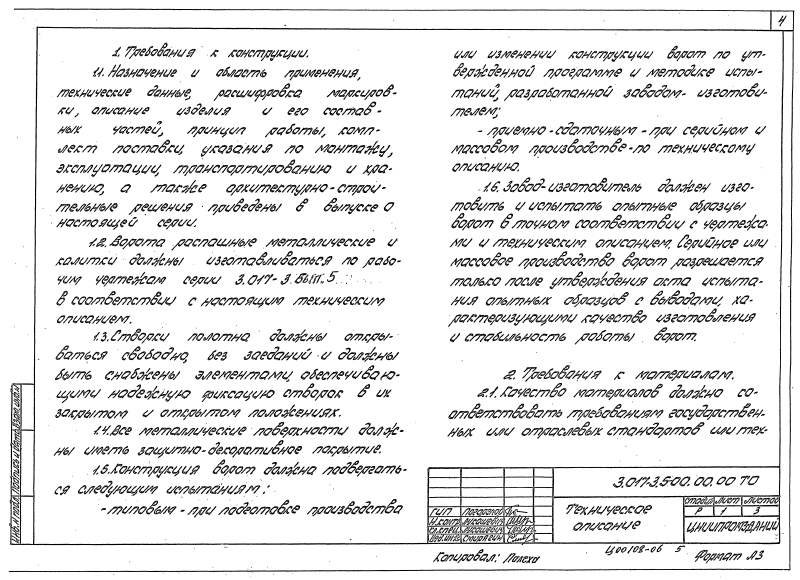 4
1. Требования к конструкции.
1.1. Назначение и область применения,
технические данные, расшифровка маркиров-
ки, описание изделия и его состав-
ных частей, принцип работы, комп-
лект поставки, указания по монтажу,
эксплуатации, транспортированию и хра-
нению, а также архитектурно-строи-
тельные решения приведены в выпуске 0
настоящей серии.
1.2. Ворота распашные металлические и
калитки должны изготавливаться по рабо-
чим чертежам серии 3.017-3. Вып. 5
в соответствии с настоящим техническим
описанием.
1.3. Створки полотна должны откры-
ваться свободно, без заеданий и должны
быть снабжены элементами, обеспечиваю-
щими надежную фиксацию створок в их
закрытом и открытом положениях.
1.4. Все металлические поверхности долж-
ны иметь защитно-декоративное покрытие.
1.5. Конструкция ворот должна подвергать-
ся следующим испытаниям:
- типовым - при подготовке производства
или изменении конструкции ворот по ут-
вержденной программе и методике испы-
таний, разработанной заводом-изготови-
телем;
- приемно-сдаточным - при серийном и
массовом производстве - по техническому
описанию.
1.6. Завод-изготовитель должен изго-
товить и испытать опытные образцы
ворот в точном соответствии с чертежа-
ми и техническим описанием. Серийное или
массовое производство ворот разрешается
только после утверждения акта испыта-
ния опытных образцов с выводами, ха-
рактеризующими качество изготовления
и стабильность работы ворот.
2. Требования к материалам.
2.1. Качество материалов должно со-
ответствовать требованиям государствен-
ных или отраслевых стандартов или тех-
3.017-3.5-00.00.00 ТО
Техническое
описание
Стадия Лист Листов
Р 1 3
ЦНИИПРОМЗДАНИЙ
ГИП
Н.конт. Лукашевич
Гл.спец. Лукашевич
Вед.инж. Смирягин
Инв.№ подл. Подпись и дата Взам.инв.№
Копировал: Ц00108-06 5 Формат А3